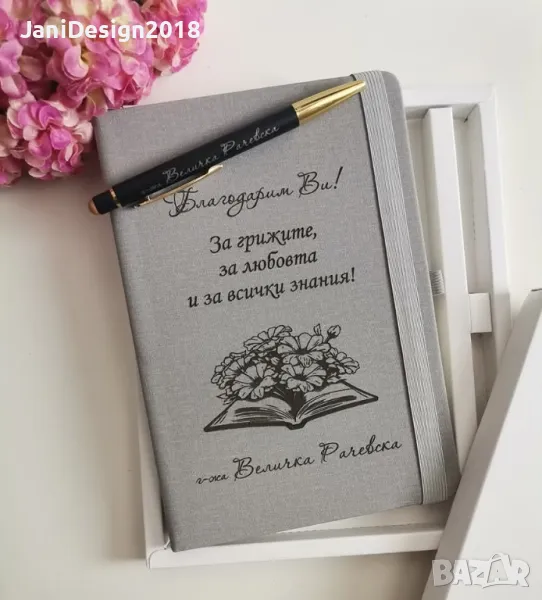 JaniDesign2018
г-жа Величка Рачевска
Благодарим Ви!
За грижите,
за любовта
и за всички знания!
г-жа Величка Рачевска
BAZAR